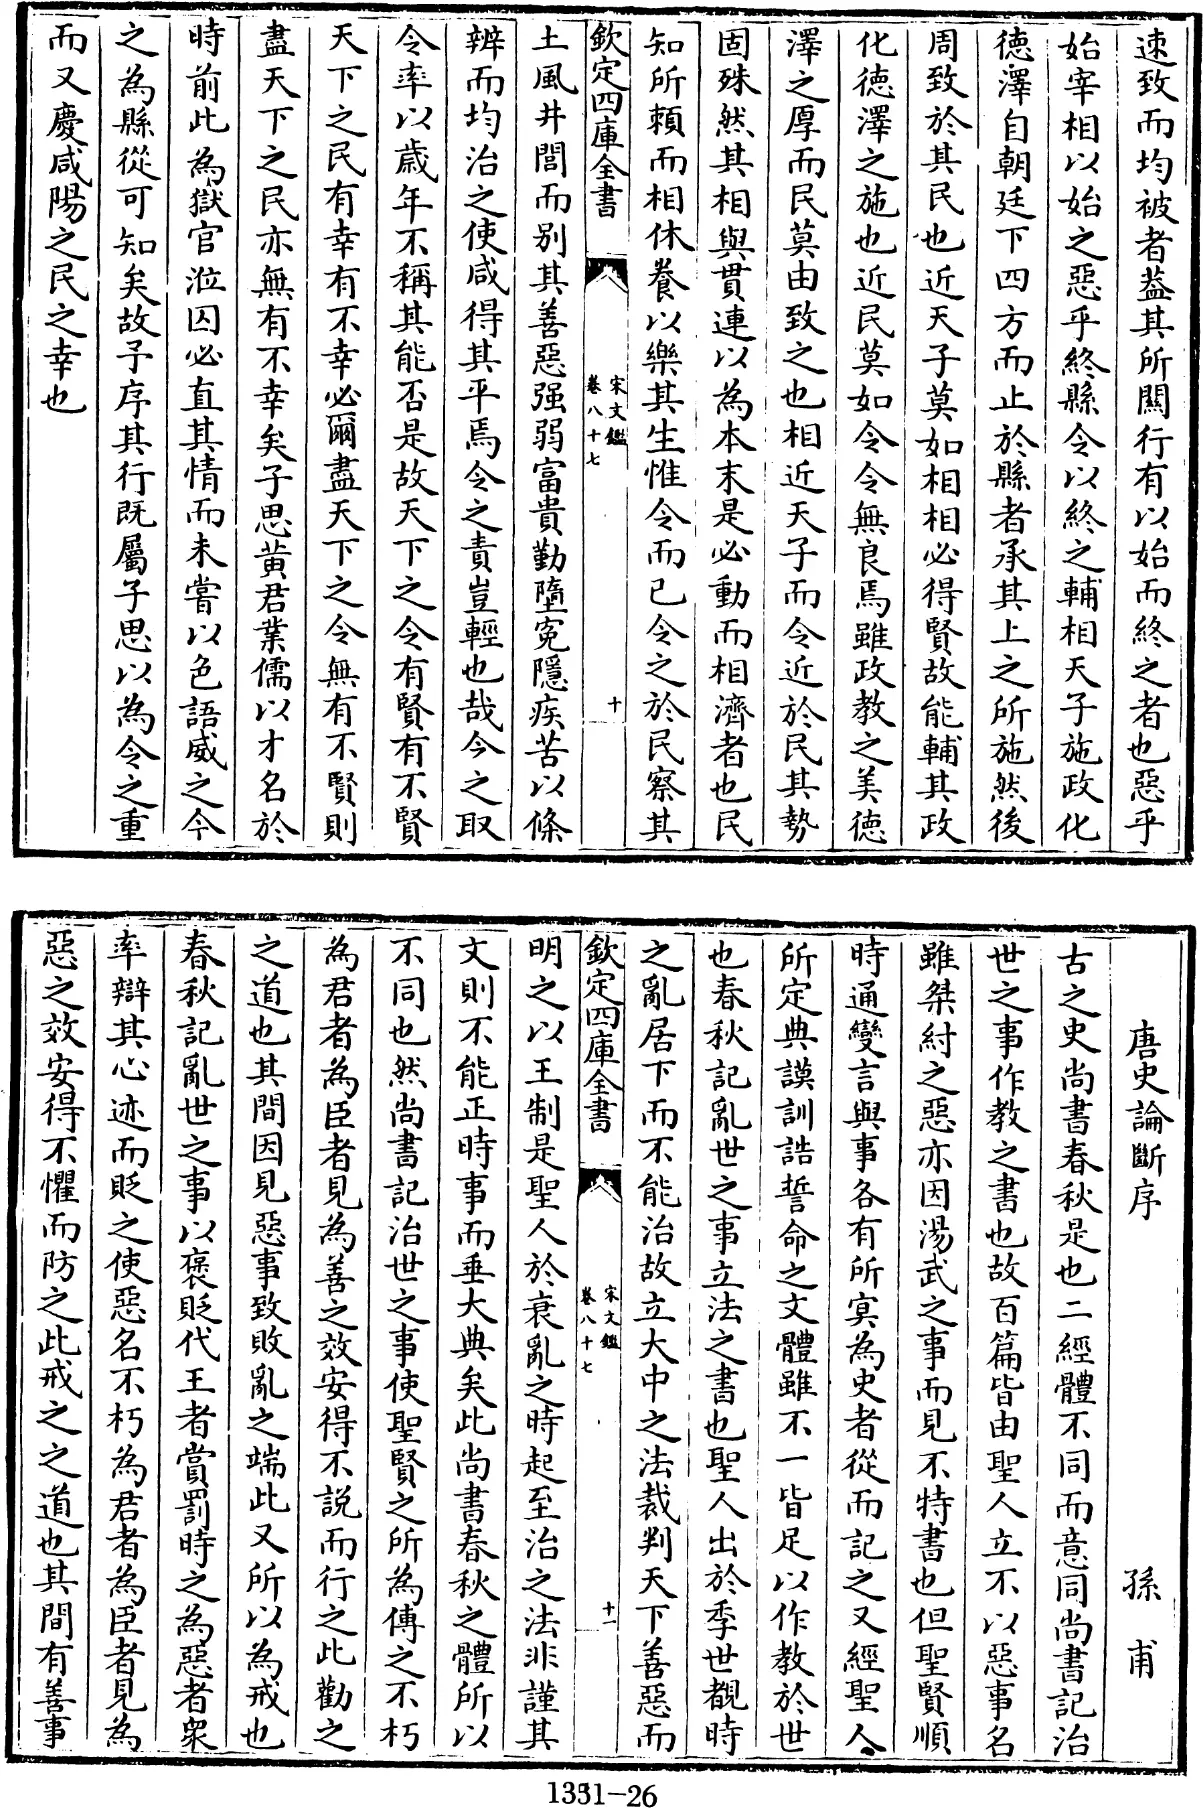 速致而均被者葢其所關行有以始而終之者也惡乎
始宰相以始之惡乎終縣令以終之輔相天子施政化
德澤自朝廷下四方而止於縣者承其上之所施然後
周致於其民也近天子莫如相相必得賢故能輔其政
化德澤之施也近民莫如令令無良焉雖政教之美德
澤之厚而民莫由致之也相近天子而令近於民其勢
固殊然其相與貫連以為本末是必動而相濟者也民
知所頼而相休養以樂其生惟令而已令之於民察其
欽定四庫全書
宋文鑑
卷八十七
十
土風井閭而别其善惡强弱富貴勤墮寃隱疾苦以條
辨而均治之使咸得其平焉令之責豈輕也哉今之取
令率以歲年不稱其能否是故天下之令有賢有不賢
天下之民有幸有不幸必爾盡天下之令無有不賢則
盡天下之民亦無有不幸矣子思黄君業儒以才名於
時前此為獄官涖囚必直其情而未嘗以色語威之今
之為縣從可知矣故予序其行既屬子思以為令之重
而又慶咸陽之民之幸也
唐史論斷序
孫甫
古之史尚書春秋是也二經體不同而意同尚書記治
世之事作教之書也故百篇皆由聖人立不以惡事名
雖桀紂之惡亦因湯武之事而見不特書也但聖賢順
時通變言與事各有所㝠為史者從而記之又經聖人
所定典謨訓誥誓命之文體雖不一皆足以作教於世
也春秋記亂世之事立法之書也聖人出於季世覩時
之亂居下而不能治故立大中之法裁判天下善惡而
欽定四庫全書
宋文鑑
卷八十七
十一
明之以王制是聖人於衰亂之時起至治之法非謹其
文則不能正時事而垂大典矣此尚書春秋之體所以
不同也然尚書記治世之事使聖賢之所為傳之不朽
為君者為臣者見為善之效安得不說而行之此勸之
之道也其間因見惡事致敗亂之端此又所以為戒也
春秋記亂世之事以褒貶代王者賞罰時之為惡者衆
率辯其心迹而貶之使惡名不朽為君者為臣者見為
惡之效安得不懼而防之此戒之之道也其間有善事
1331-26